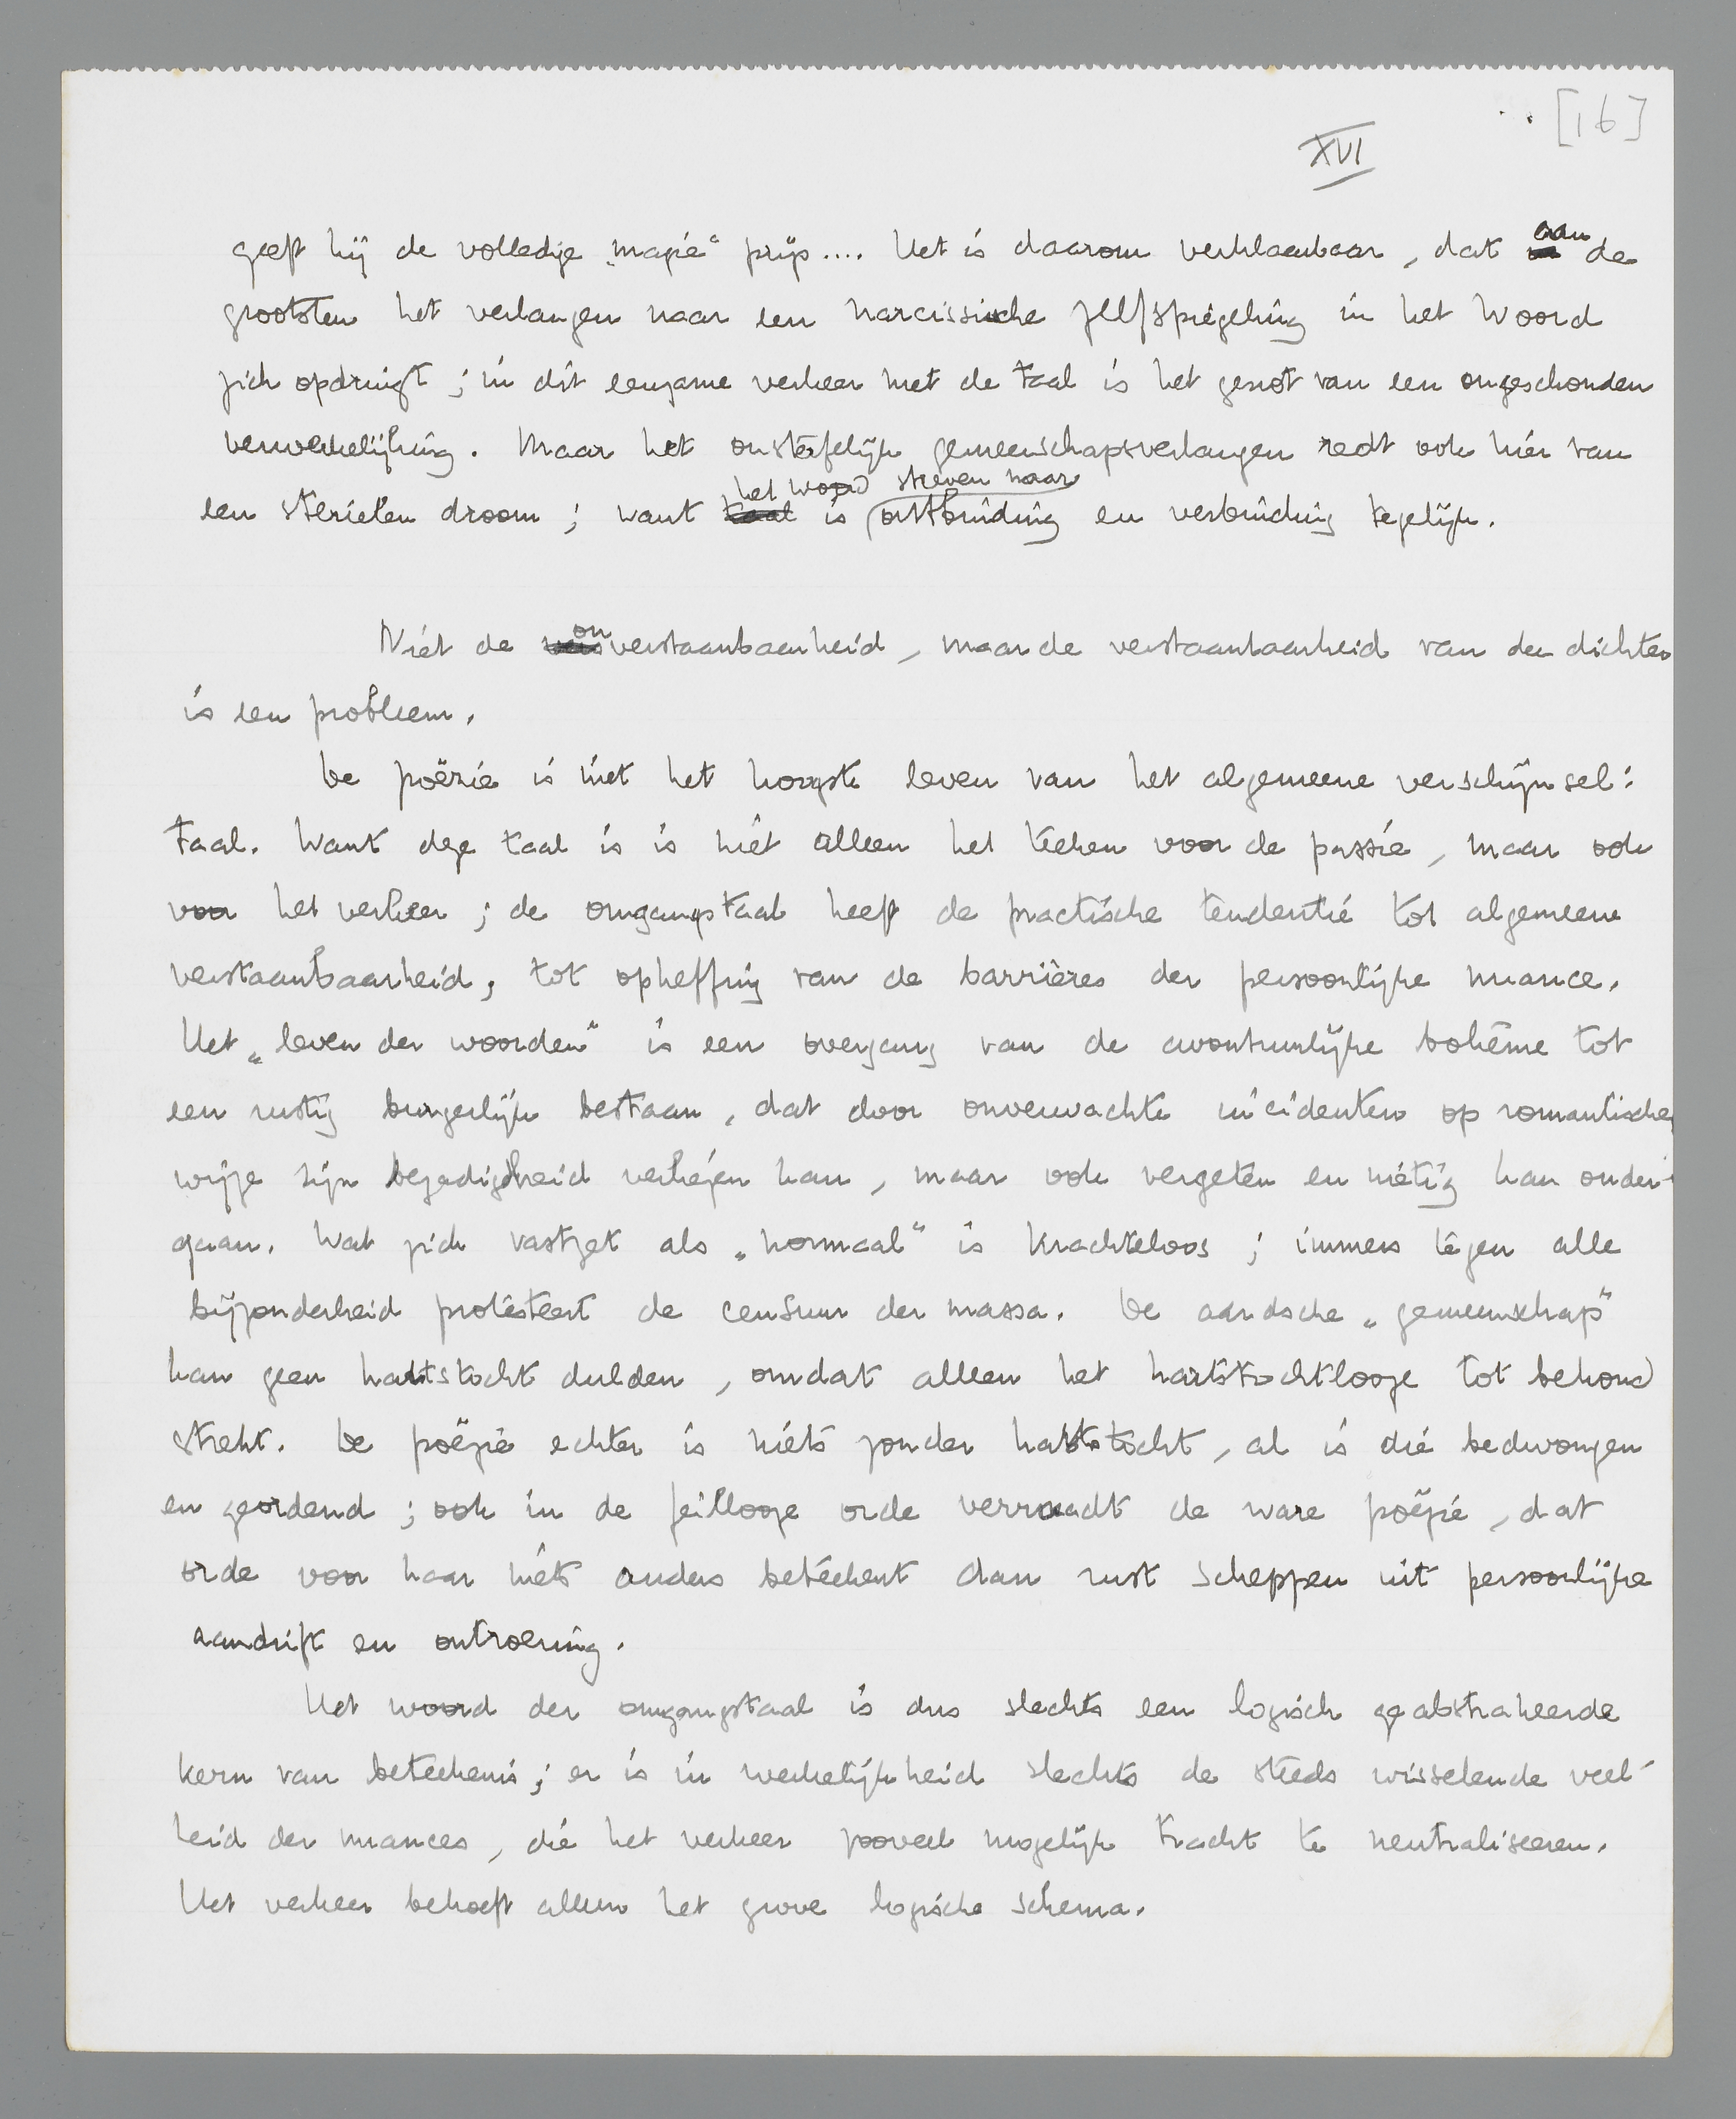 [16]
XVI
geeft hij de volledige „magie" prijs.... Het is daarom verklaarbaar, dat aan de
grootsten het verlangen naar een narcissische zelfspiegeling in het woord
zich opdringt; in dit eenzame verkeer met de taal is het genot van een ongeschonden
verwerkelijking. Maar het onsterfelijk gemeenschapsverlangen redt ook hier van
het woord streven naar
een sterielen droom; want taal is ontbinding en verbinding tegelijk.
Niet de onverstaanbaarheid, maar de verstaanbaarheid van den dichter
is een probleem.
De poëzie is niet het hoogste leven van het algemeene verschijnsel:
taal. Want deze taal is is niet alleen het teeken voor de passie, maar ook
voor het verkeer; de omgangstaal heeft de practische tendentie tot algemeene
verstaanbaarheid, tot opheffing van de barrières der persoonlijke nuance.
Het „leven der woorden" is een overgang van de avontuurlijke bohême tot
een rustig burgerlijk bestaan, dat door onverwachte incidenten op romantische
wijze zijn bezadigdheid verliezen kan, maar ook vergeten en nietig kan onder-
gaan. Wat zich vastzet als „normaal" is krachteloos; immers tegen alle
bijzonderheid protesteert de censuur der massa. De aardsche „gemeenschap"
kan geen hartstocht dulden, omdat alleen het hartstochtlooze tot behoud
strekt. De poëzie echter is niets zonder hartstocht, al is die bedwongen
en geordend; ook in de feillooze orde verraadt de ware poëzie, dat
orde voor haar niets anders beteekent dan rust scheppen uit persoonlijke
aandrift en ontroering.
Het woord der omgangstaal is dus slechts een logisch geabstraheerde
kern van beteekenis; er is in werkelijkheid slechts de steeds wisselende veel-
heid der nuances, die het verkeer zooveel mogelijk tracht te neutraliseeren.
Het verkeer behoeft alleen het grove logische schema.